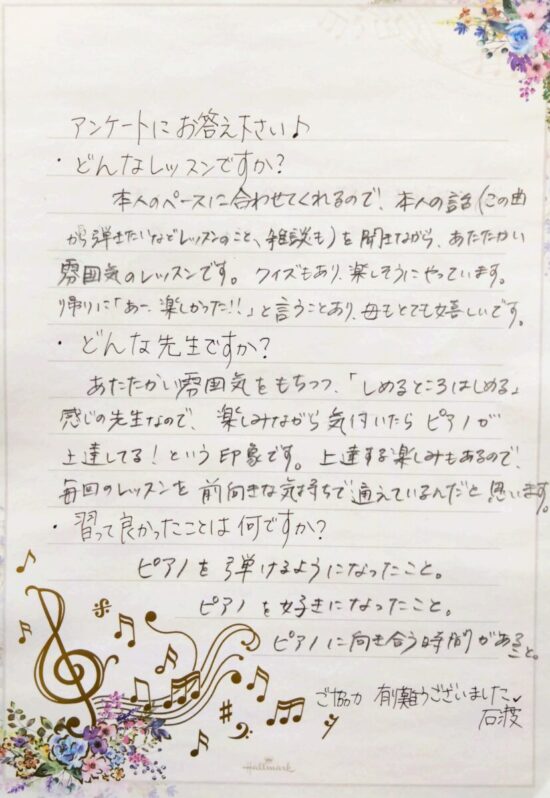 アンケートにお答え下さい♪
・どんなレッスンですか?
本人のペースに合わせてくれるので、本人の話(この曲
から弾きたいなどレッスンのこと、雑談も)を聞きながら、あたたかい
雰囲気のレッスンです。クイズもあり、楽しそうにやっています。
帰りに「あー、楽しかった!!」と言うことあり、母もとても嬉しいです。
・どんな先生ですか?
あたたかい雰囲気をもちつつ、「しめるところはしめる」
感じの先生なので、楽しみながら気付いたらピアノが
上達してる!という印象です。上達する楽しみもあるので、
毎回のレッスンを前向きな気持ちで迎えているんだと思います。
・習って良かったことは何ですか?
ピアノを弾けるようになったこと。
ピアノを好きになったこと。
ピアノに向き合う時間があること。
ご協力 有難うございました
石波
Hallmark